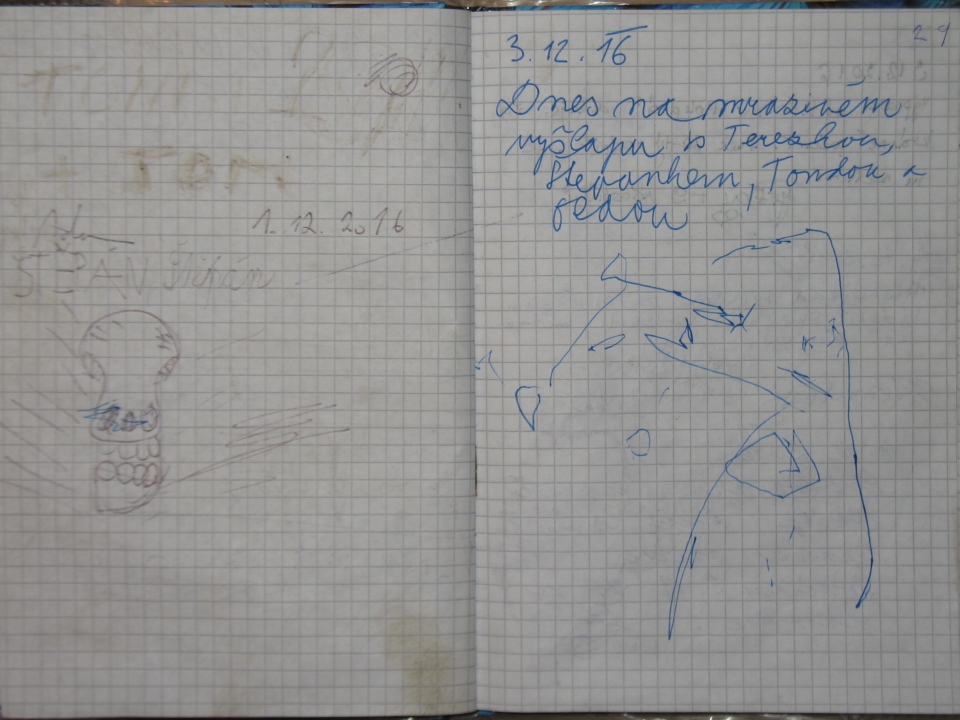 1. 12. 2016
ŠTĚPÁN Štěpán
29
3. 12. 16
Dnes na mrazivém
výšlapu s Terezkou,
Štěpánkem, Tondou a